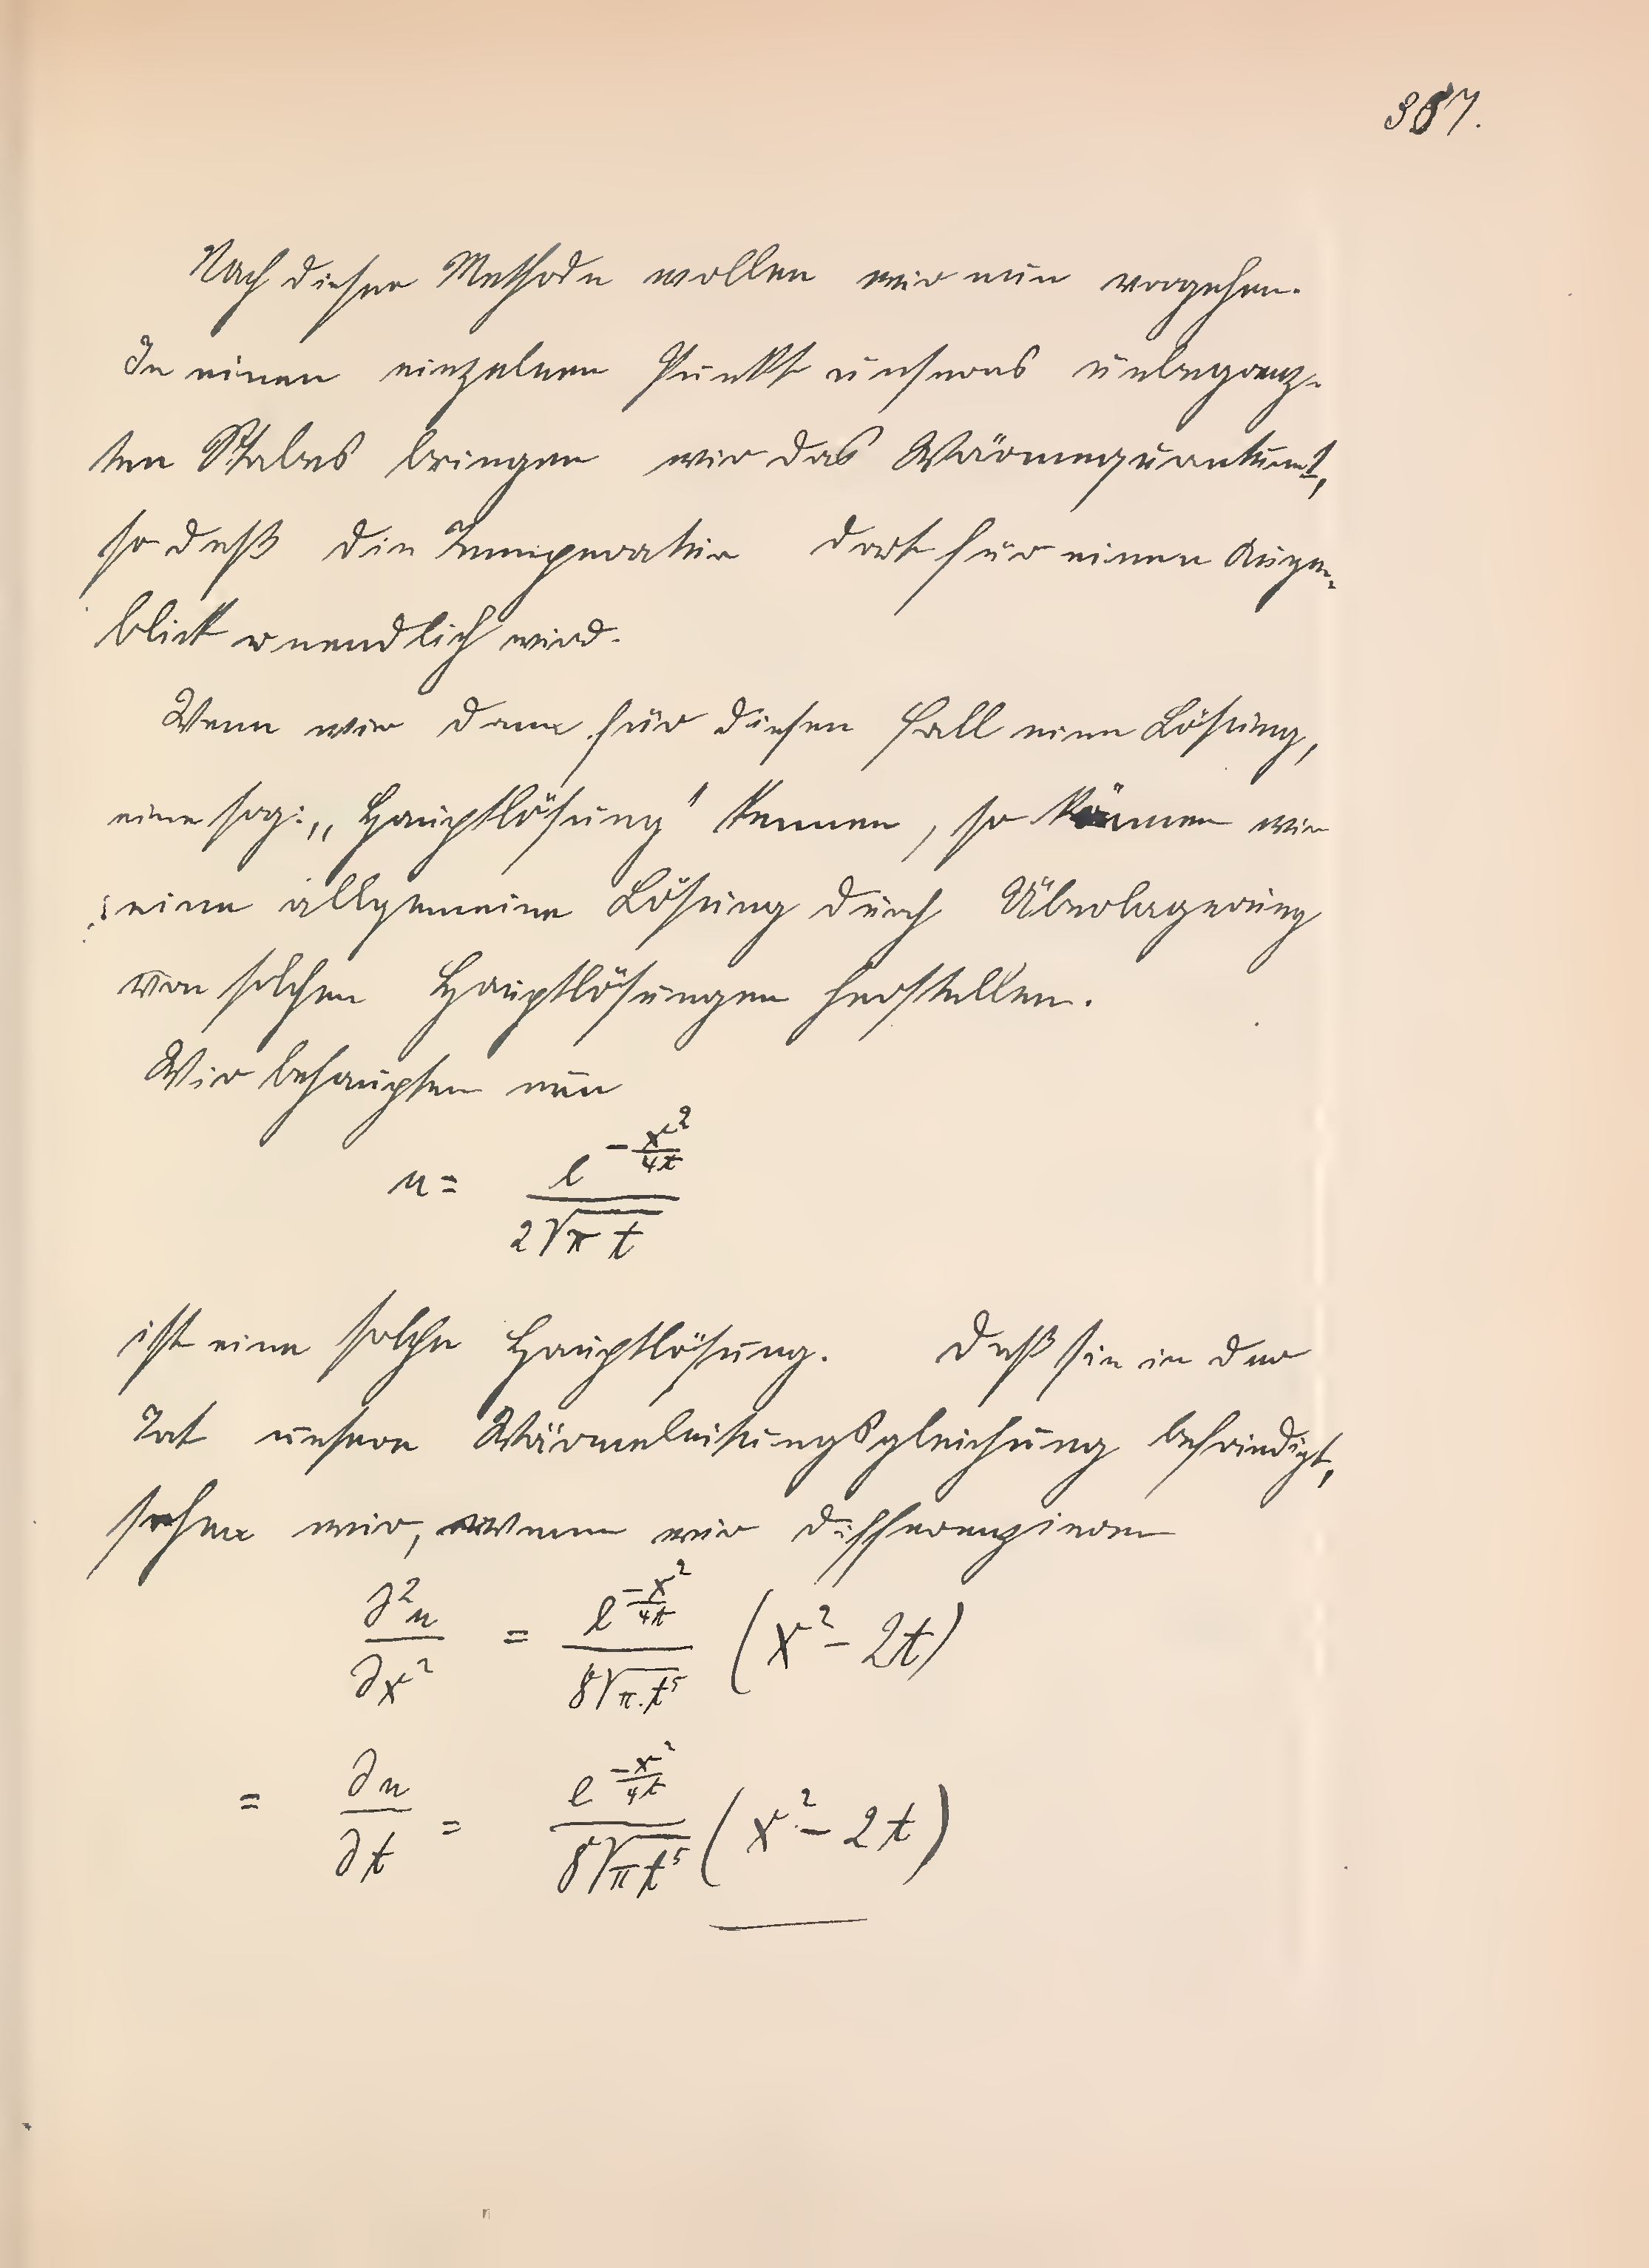 387.
Nach dieser Methode wollen wir nun vorgehen.
In einen einzelnen Punkt unseres unbegrenz-
ten Stabes bringen wir das Wärmequantum 1,
so daß die Temperatur dort für einen Augen-
blick unendlich wird.
Wenn wir dann für diesen Fall eine Lösung,
eine sog: „Hauptlösung" kennen, so können wir
eine allgemeine Lösung durch Überlagerung
von solchen Hauptlösungen herstellen.
Wir behaupten nun
u = \frac{e^{-\frac{x^2}{4t}}}{2\sqrt{\pi t}}
ist eine solche Hauptlösung. Daß sie in der
Tat unsere Wärmeleitungsgleichung befriedigt,
sehen wir, wenn wir differenzieren
\frac{\partial^2 u}{\partial x^2} = \frac{e^{-\frac{x^2}{4t}}}{8\sqrt{\pi \cdot t^5}} (x^2 - 2t)
= \frac{\partial u}{\partial t} = \frac{e^{-\frac{x^2}{4t}}}{8\sqrt{\pi t^5}} (x^2 - 2t)